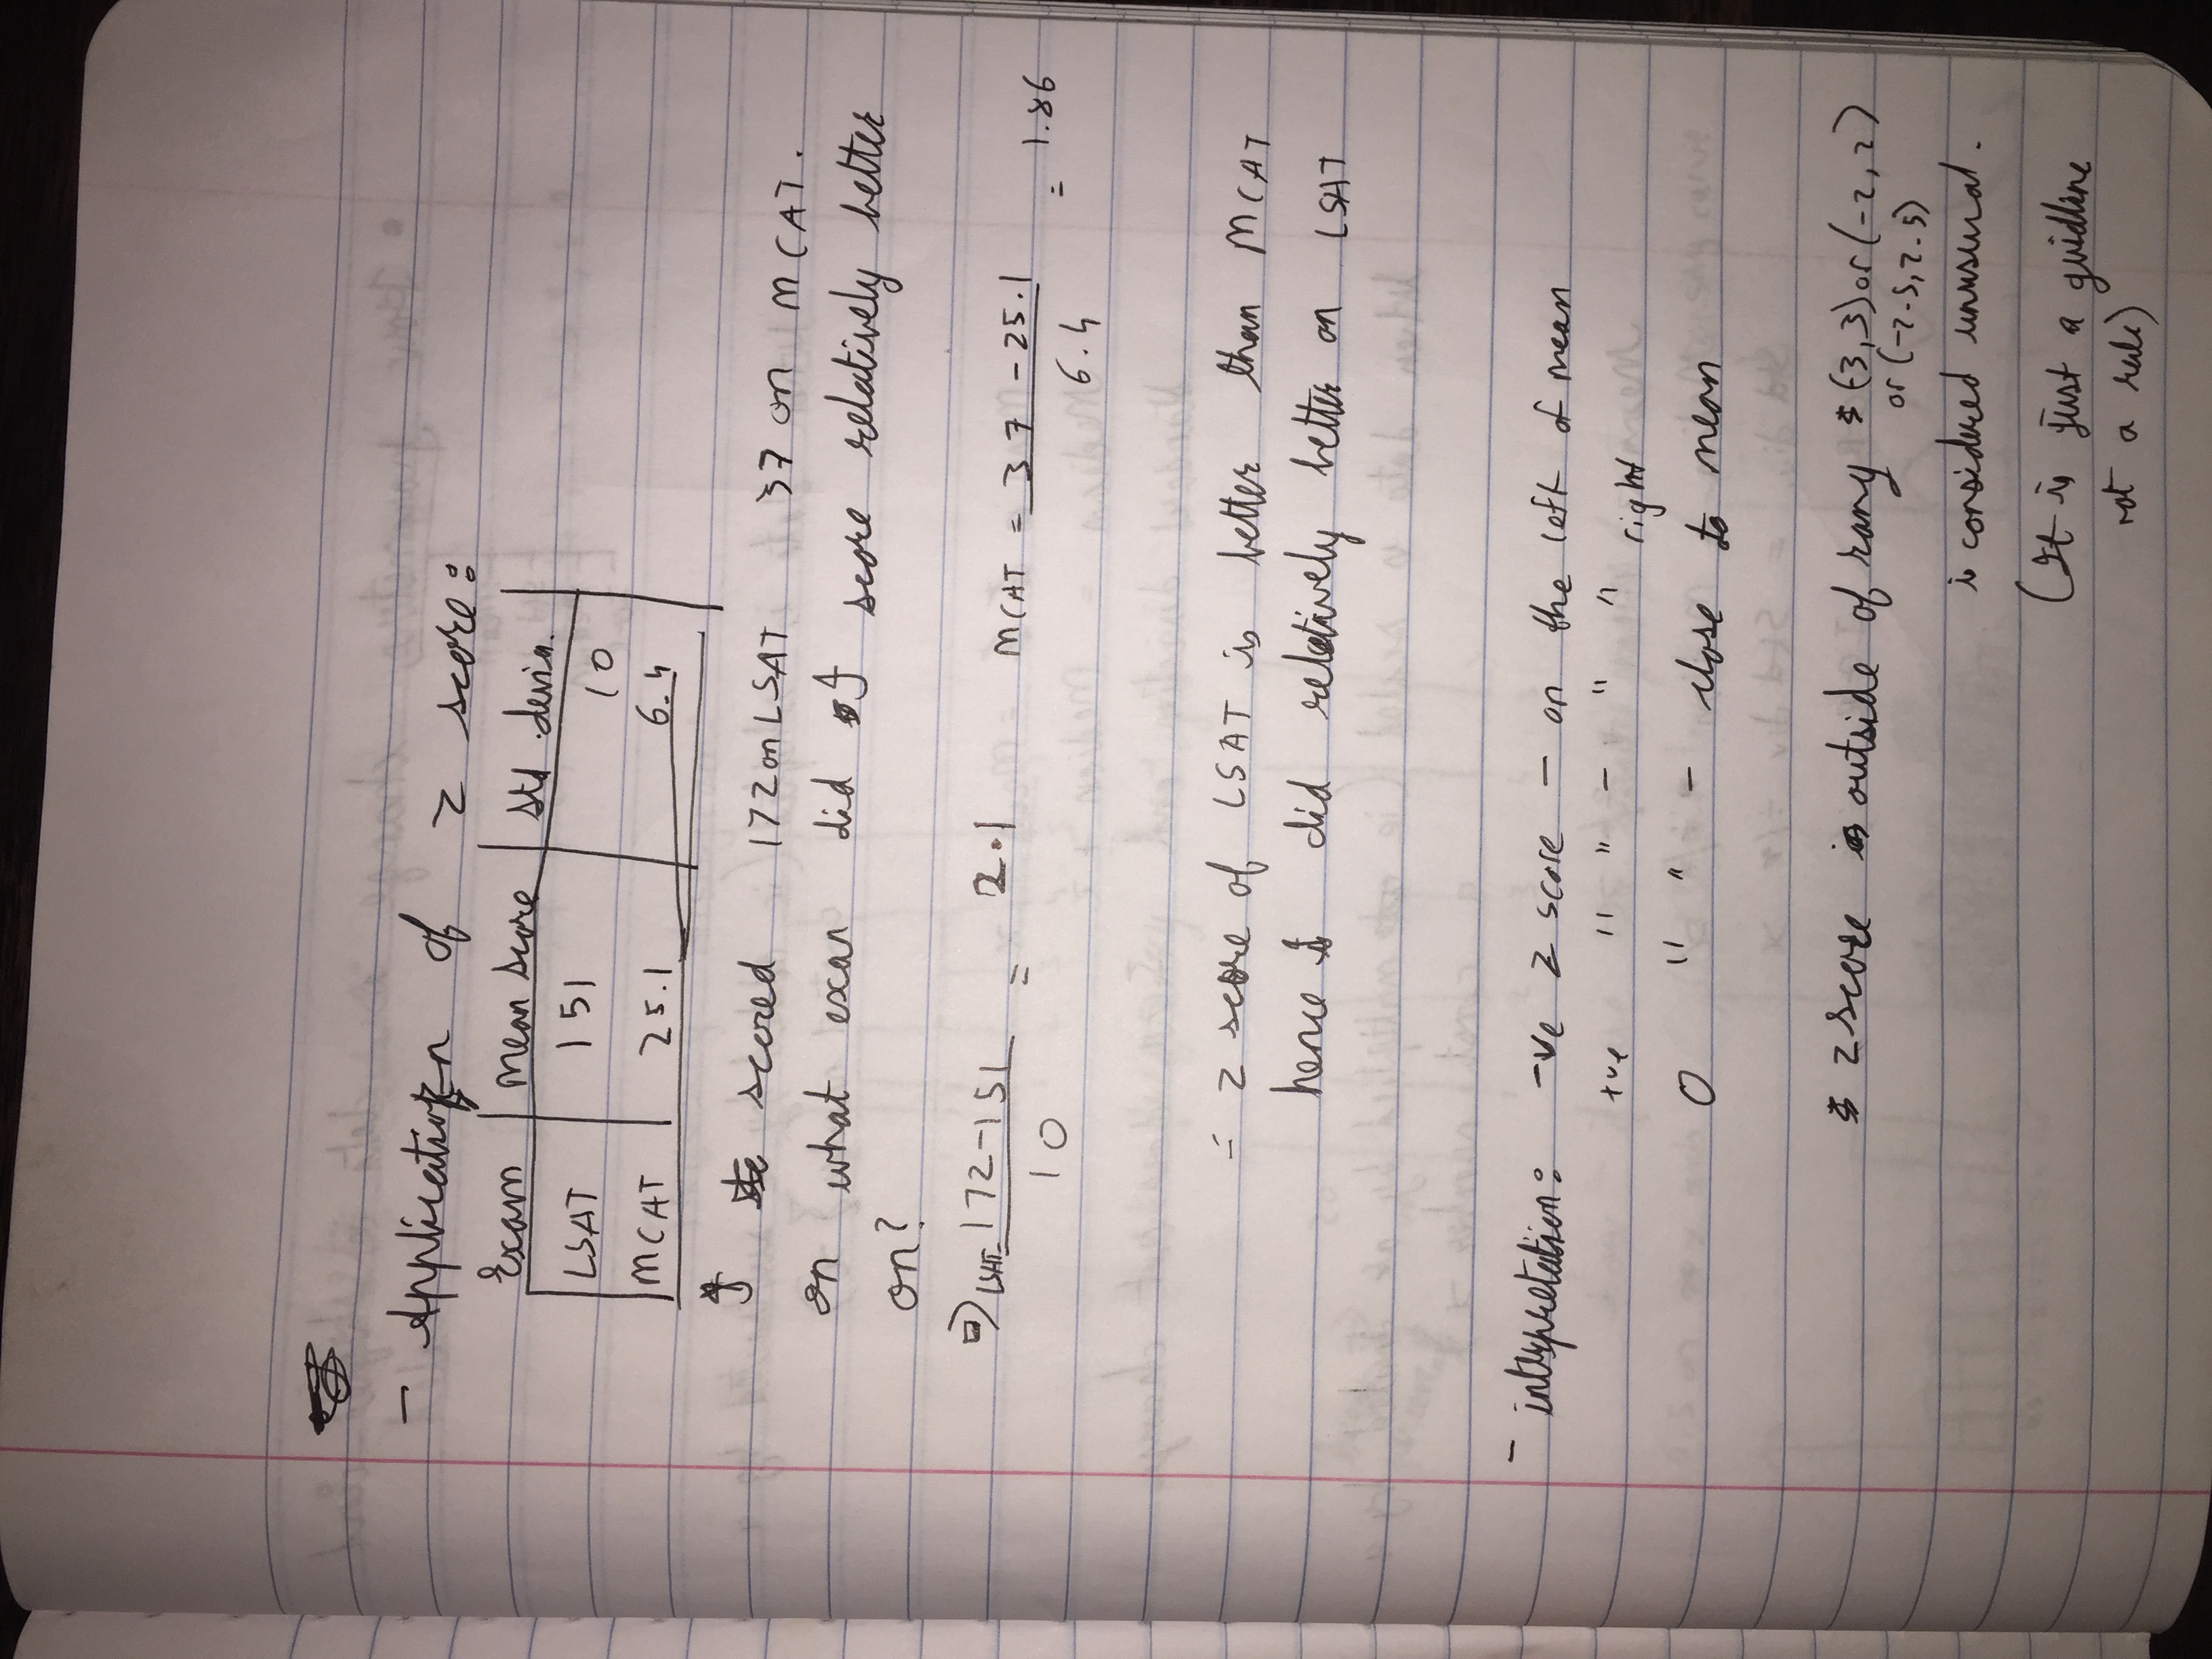 - Application of z score:
Exam | mean score | std .devia.
LSAT | 151 | 10
MCAT | 25.1 | 6.4
I scored 172 on LSAT 37 on MCAT.
on what exan did I score relatively better
on?
⇒ LSAT = 172-151 / 10 = 2.1 MCAT = 37 - 25.1 / 6.4 = 1.86
= z score of LSAT is better than MCAT
hence I did relatively better on LSAT
- interpretation: -ve z score - on the left of mean
+ve " " - " " right
0 " " - close to mean
z score outside of rang (-3,3) or (-2, 2)
or (-2.5, 2.5)
is considered unusual.
(It is just a guidline
not a rule)